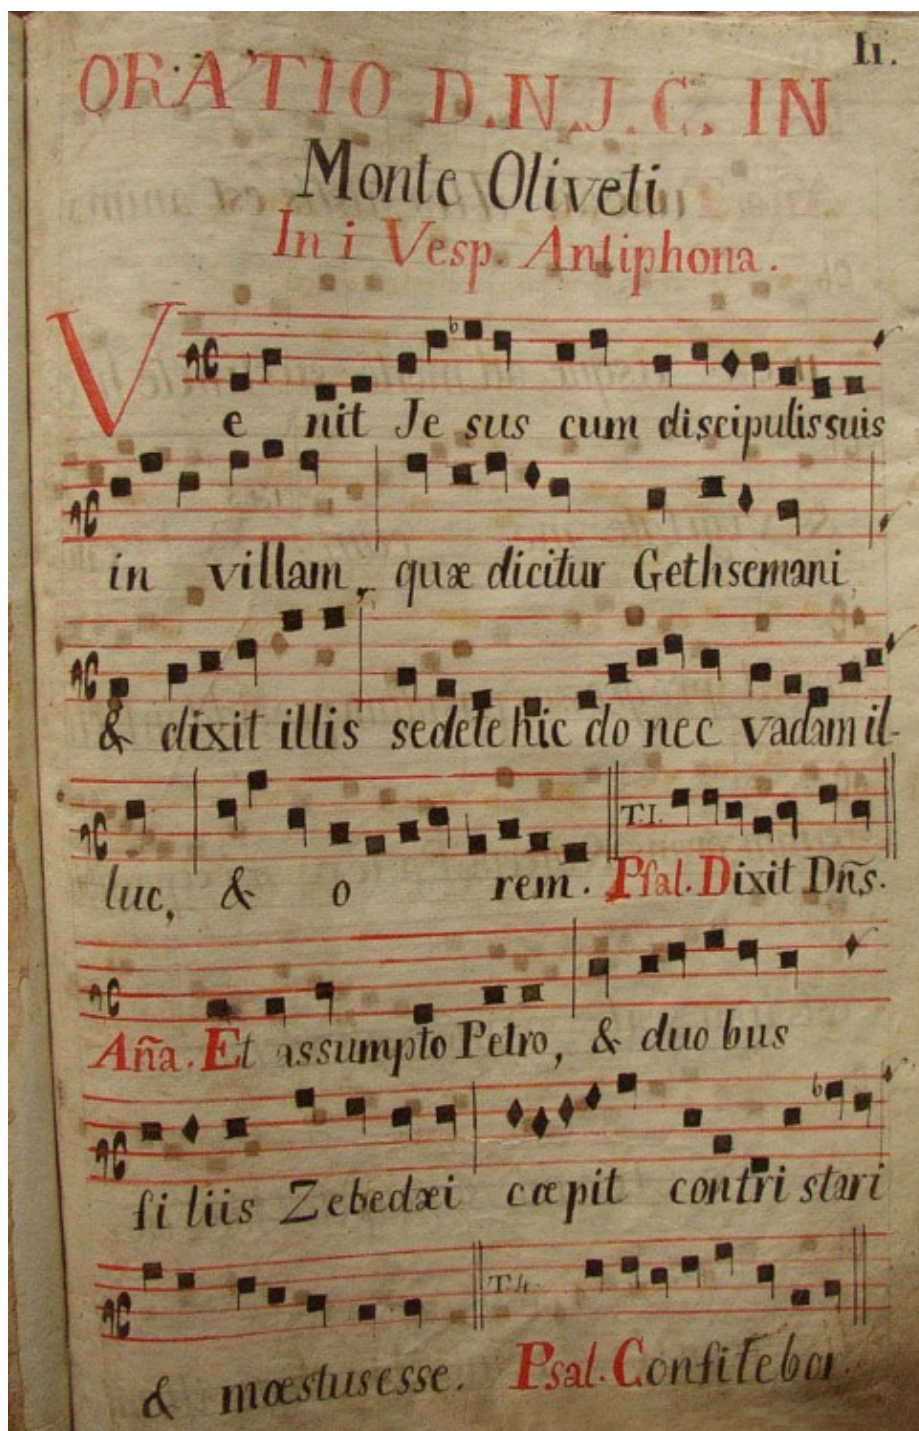 Ii.
ORATIO D.N.J.C. IN
Monte Oliveti
In i Vesp. Antiphona.
Ve nit Je sus cum discipulis suis
in villam, quæ dicitur Gethsemani
& dixit illis sedete hic do nec vadam il-
luc, & o rem. T.I. Psal. Dixit Dñs.
Aña. Et assumpto Petro, & duo bus
fi liis Zebedæi cœpit contri stari
& mœstus esse. T.4. Psal. Confitebor.